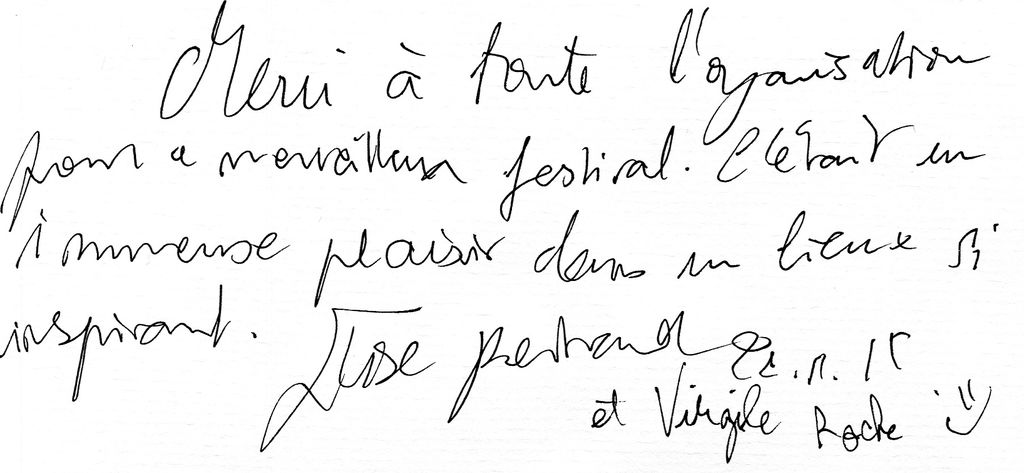 Merci à toute l'organisation
pour ce merveilleux festival. C'était un
immense plaisir dans un lieux si
inspirant.
Bertrand
et Virgile Roche :)